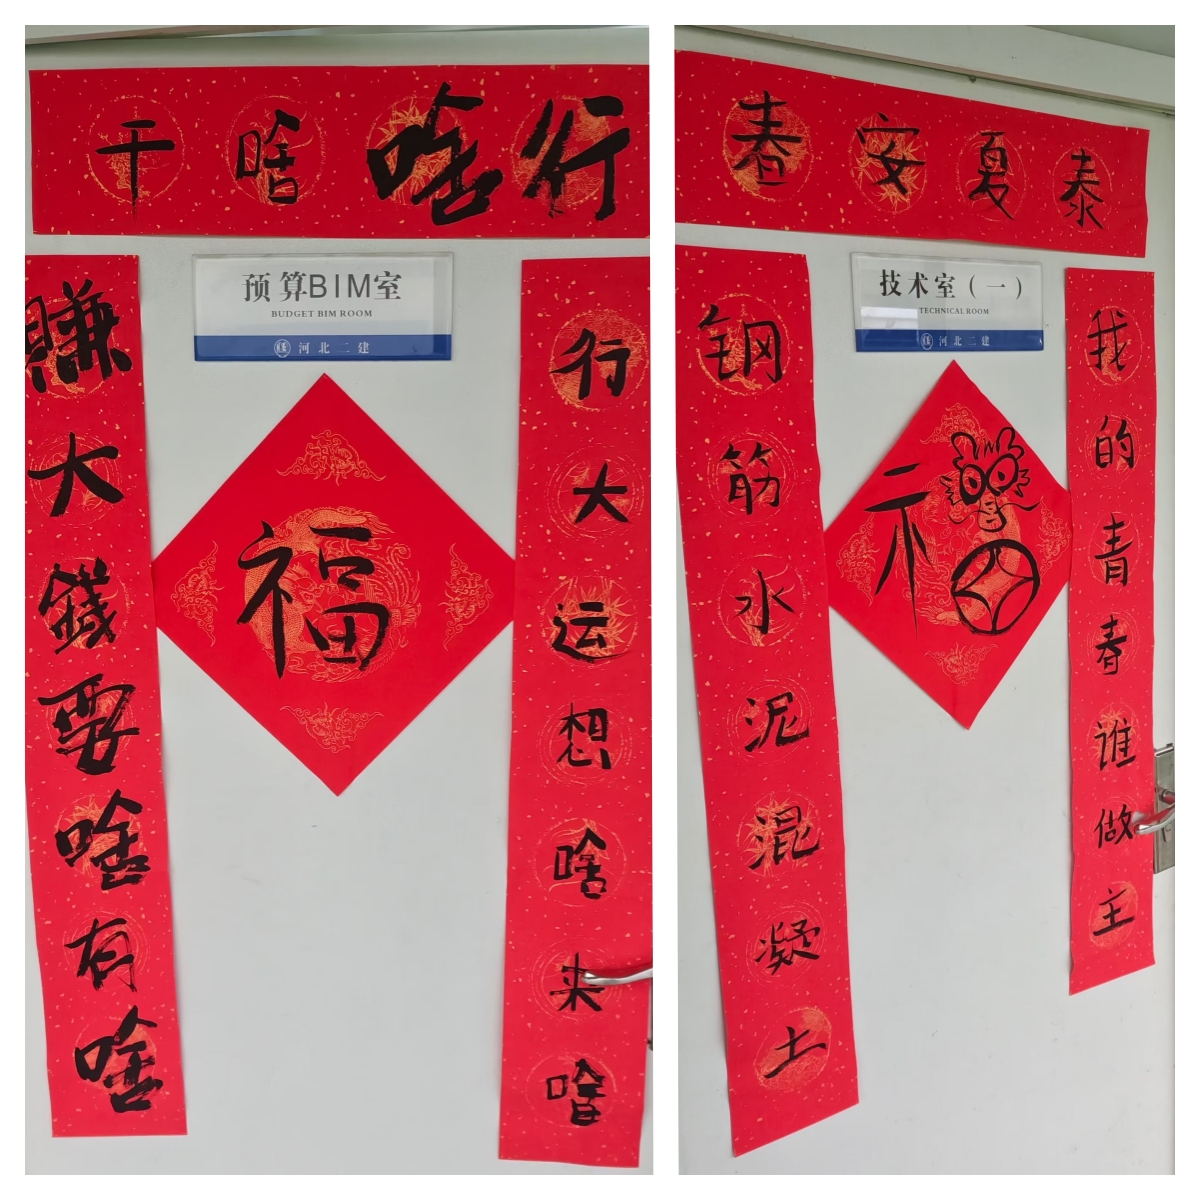 干啥啥行
预算BIM室
BUDGET BIM ROOM
河北二建
賺大錢要啥有啥
福
行大运想啥来啥
春安夏泰
技术室（一）
TECHNICAL ROOM
河北二建
钢筋水泥混凝土
福
我的青春谁做主